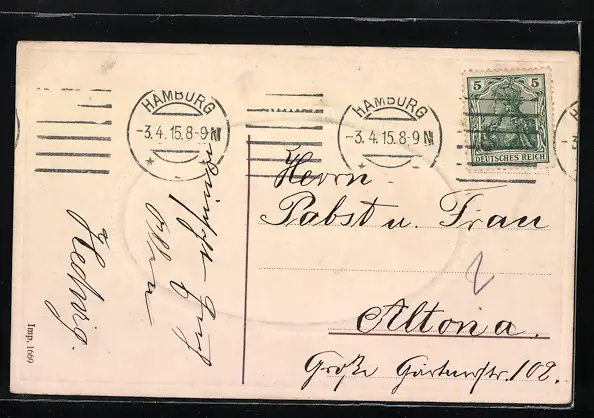 HAMBURG
-3.4.15.8-9 N
HAMBURG
-3.4.15.8-9 N
5 5
DEUTSCHES REICH
Herrn
Pabst u. Frau
Altona.
Große Gärtnerstr. 102.
wünscht
Hedwig.
Imp. 1669